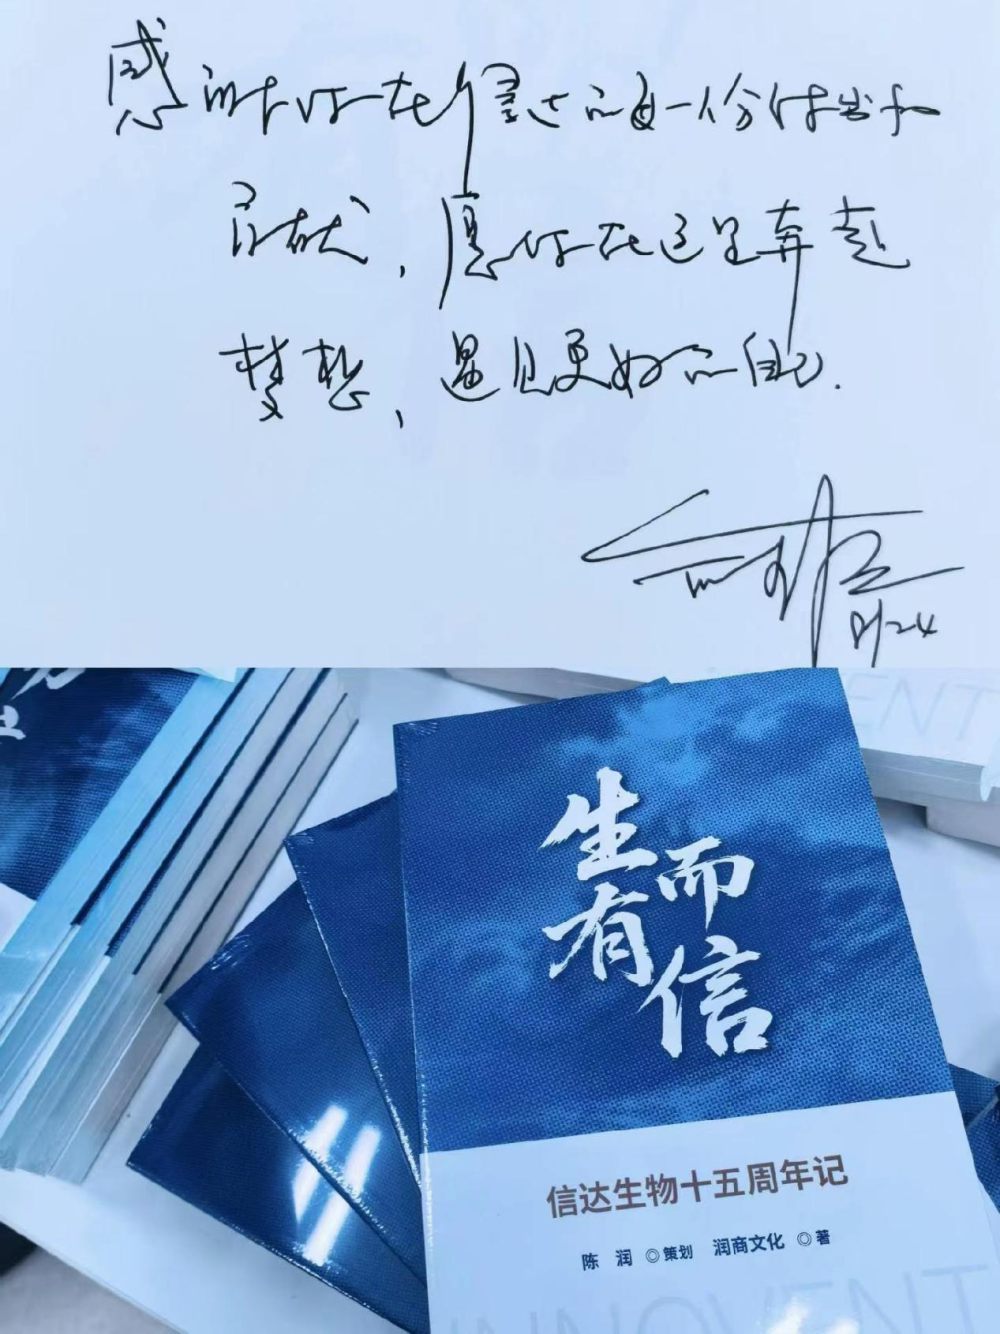 感谢你在信达的每一份付出和
贡献，愿你在这里奔赴
梦想，遇见更好的自己.
生而
有信
信达生物十五周年记
陈 润 ◎策划 润商文化 ◎著
INNOVENT